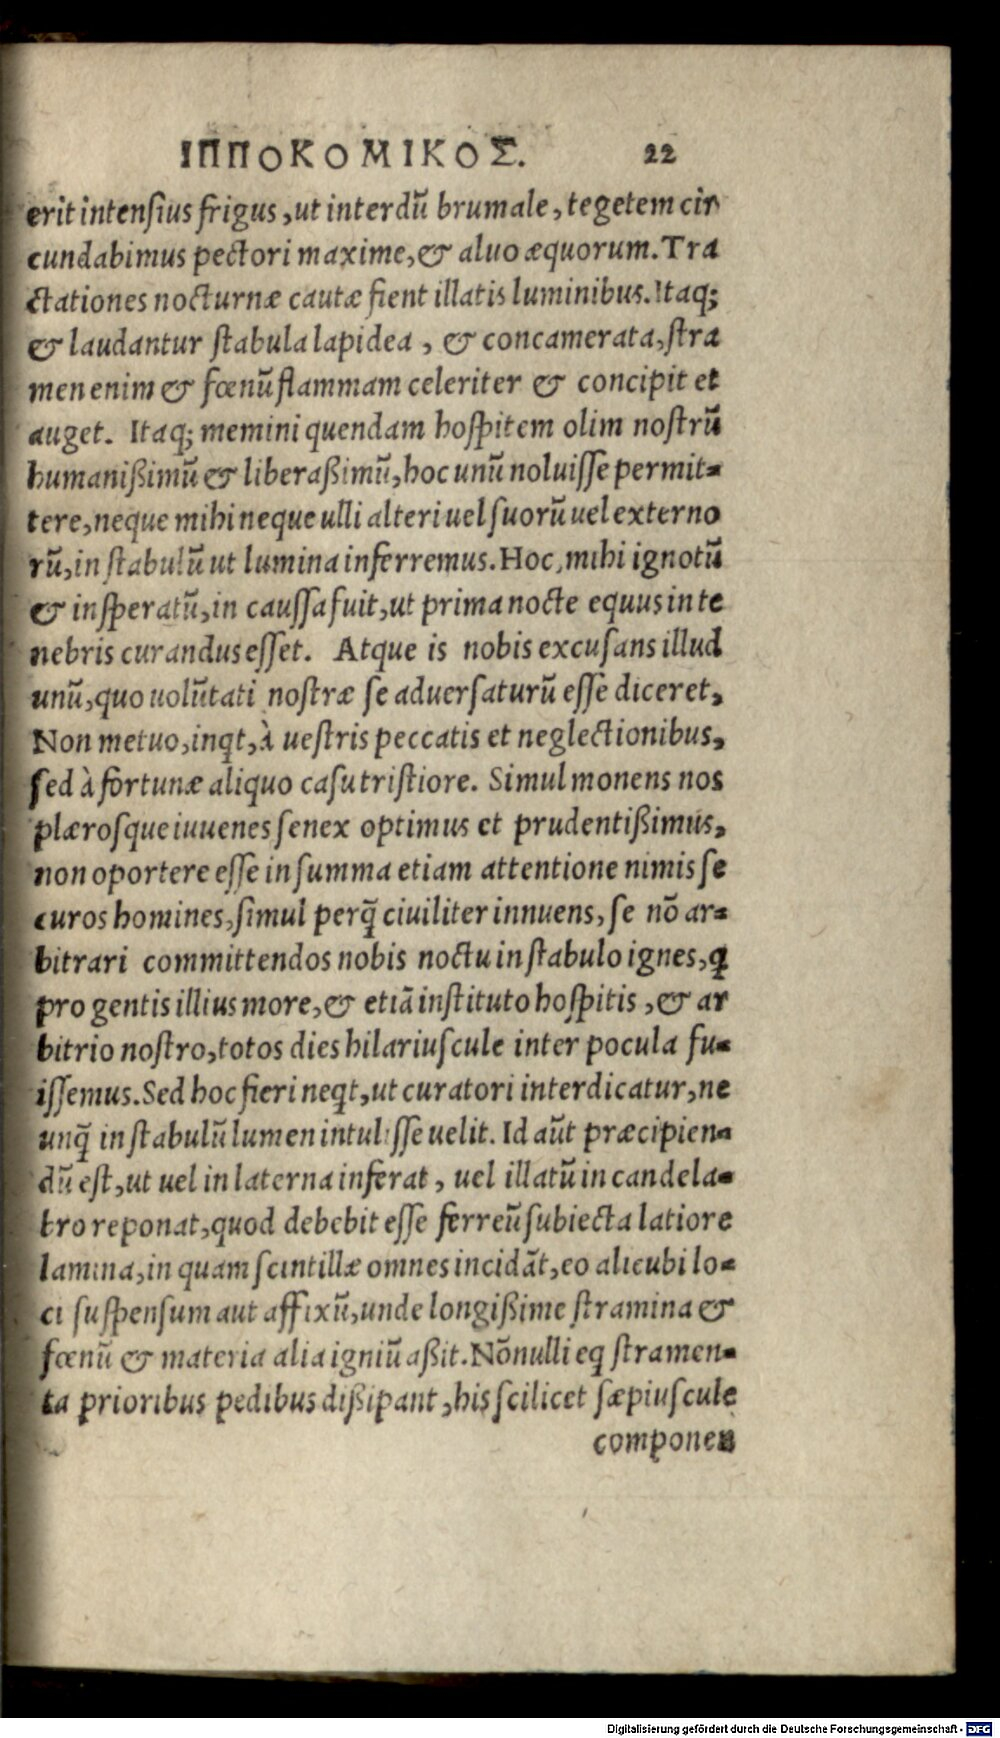 ΙΠΠΟΚΟΜΙΚΟΣ. 22
erit intensius frigus, ut interdũ brumale, tegetem cir
cundabimus pectori maxime, & aluo æquorum. Tra
ctationes nocturnæ cautæ fient illatis luminibus. Itaq;
& laudantur stabula lapidea, & concamerata, stra
men enim & fœnũ flammam celeriter & concipit et
auget. Itaq; memini quendam hospitem olim nostrũ
humanißimũ & liberaßimũ, hoc unũ noluisse permit-
tere, neque mihi neque ulli alteri uel suorũ uel externo
rũ, in stabulũ ut lumina inferremus. Hoc, mihi ignotũ
& insperatũ, in caussa fuit, ut prima nocte equus in te
nebris curandus esset. Atque is nobis excusans illud
unũ, quo uolũtati nostræ se aduersaturũ esse diceret,
Non metuo, inqt, à uestris peccatis et neglectionibus,
sed à fortunæ aliquo casu tristiore. Simul monens nos
plærosque iuuenes senex optimus et prudentißimus,
non oportere esse in summa etiam attentione nimis se
curos homines, simul perq̃ ciuiliter innuens, se nõ ar-
bitrari committendos nobis noctu in stabulo ignes, q
pro gentis illius more, & etiã instituto hospitis, & ar
bitrio nostro, totos dies hilariuscule inter pocula fu-
issemus. Sed hoc fieri neqt, ut curatori interdicatur, ne
unq̃ in stabulũ lumen intulisse uelit. Id aũt præcipien-
dũ est, ut uel in laterna inferat, uel illatũ in candela-
bro reponat, quod debebit esse ferreũ subiecta latiore
lamina, in quam scintillæ omnes incidãt, eo alicubi lo-
ci suspensum aut affixũ, unde longißime stramina &
fœnũ & materia alia igniũ aßit. Nõnulli eq stramen-
ta prioribus pedibus dißipant, his scilicet sæpiuscule
componen
Digitalisierung gefördert durch die Deutsche Forschungsgemeinschaft - DFG